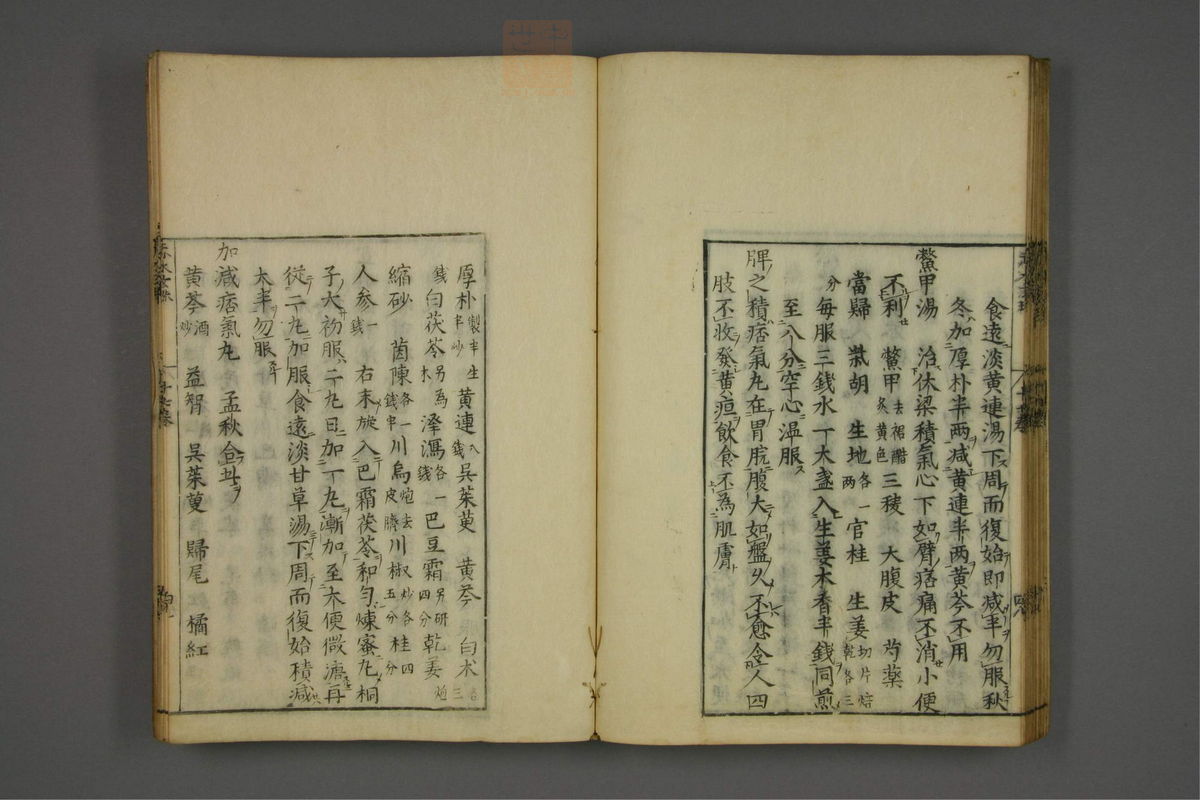 食遠淡黄連湯下周而復始即减半勿服秋
冬加厚朴半两减黄連半两黄芩不用
鱉甲湯 治休梁積氣心下如臂痞痛不消小便
不利 鱉甲去裙醋炙黄色 三稜 大腹皮 芍藥
當歸 柴胡 生地各一两 官桂 生姜切片焙乾各三分
每服三錢水一大盞入生姜木香半錢同煎
至八分空心温服
脾之積痞氣丸在胃脘腹大如盤久不愈令人四
肢不收發黄疸飲食不為肌膚
厚朴製半生半炒 黄連八錢 吳茱萸 黄芩 白术各三
錢 白茯苓另為末 澤瀉各一錢 巴豆霜另研四分 乾姜炮
縮砂 茵陳各一錢半 川烏炮去皮臍 川椒炒各五分 桂四分
人参一錢 右末旋入巴霜茯苓和匀煉蜜丸桐
子大初服二丸日加一丸漸加至大便微溏再
從二丸加服食遠淡甘草湯下周而復始積减
大半勿服
加减痞氣丸 孟秋合此
黄芩酒炒 益智 吳茱萸 歸尾 橘紅